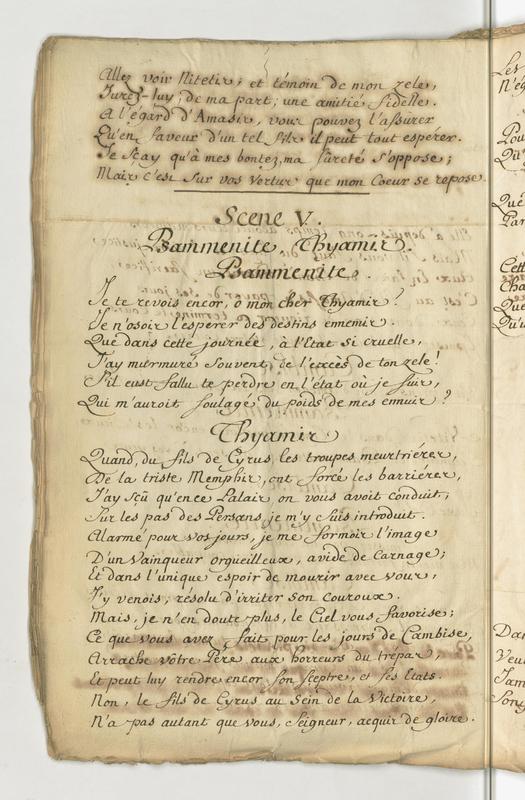 Allez voir Nitetis; et témoin de mon zele,
Jurez-luy, de ma part, une amitié fidelle.
A l'égard d'Amasis, vous pouvez l'assurer
Qu'en faveur d'un tel fils il peut tout esperer.
Je sçay qu'à mes bontez, ma sûreté s'oppose;
Mais c'est sur vos vertus que mon Coeur se repose.
Scene V.
Psammenite, Thyamis.
Psammenite.
Je te revois encor, ô mon cher Thyamis?
Je n'osois l'esperer des destins ennemis.
Que dans cette journée, à l'Etat si cruelle,
J'ay murmuré souvent, de l'excès de ton zele!
S'il eust fallu te perdre en l'état où je suis,
Qui m'auroit soulagé du poids de mes ennuis?
Thyamis
Quand, du fils de Cyrus, les troupes meurtriéres,
De la triste Memphis, ont forcé les barriéres,
J'ay sçû qu'en ce Palais, on vous avoit conduit;
Sur les pas des Persans, je m'y suis introduit.
Alarmé pour vos jours, je me formois l'image
D'un Vainqueur orgueilleux, avide de carnage;
Et dans l'unique espoir de mourir avec vous,
J'y venois, résolu d'irriter son couroux.
Mais, je n'en doute plus, le Ciel vous favorise;
Ce que vous avez fait pour les jours de Cambise,
Arrache vôtre Pére aux horreurs du trépas,
Et peut luy rendre encor son sceptre, et ses Etats.
Non, le fils de Cyrus au sein de la Victoire,
N'a pas autant que vous, Seigneur, acquis de gloire.